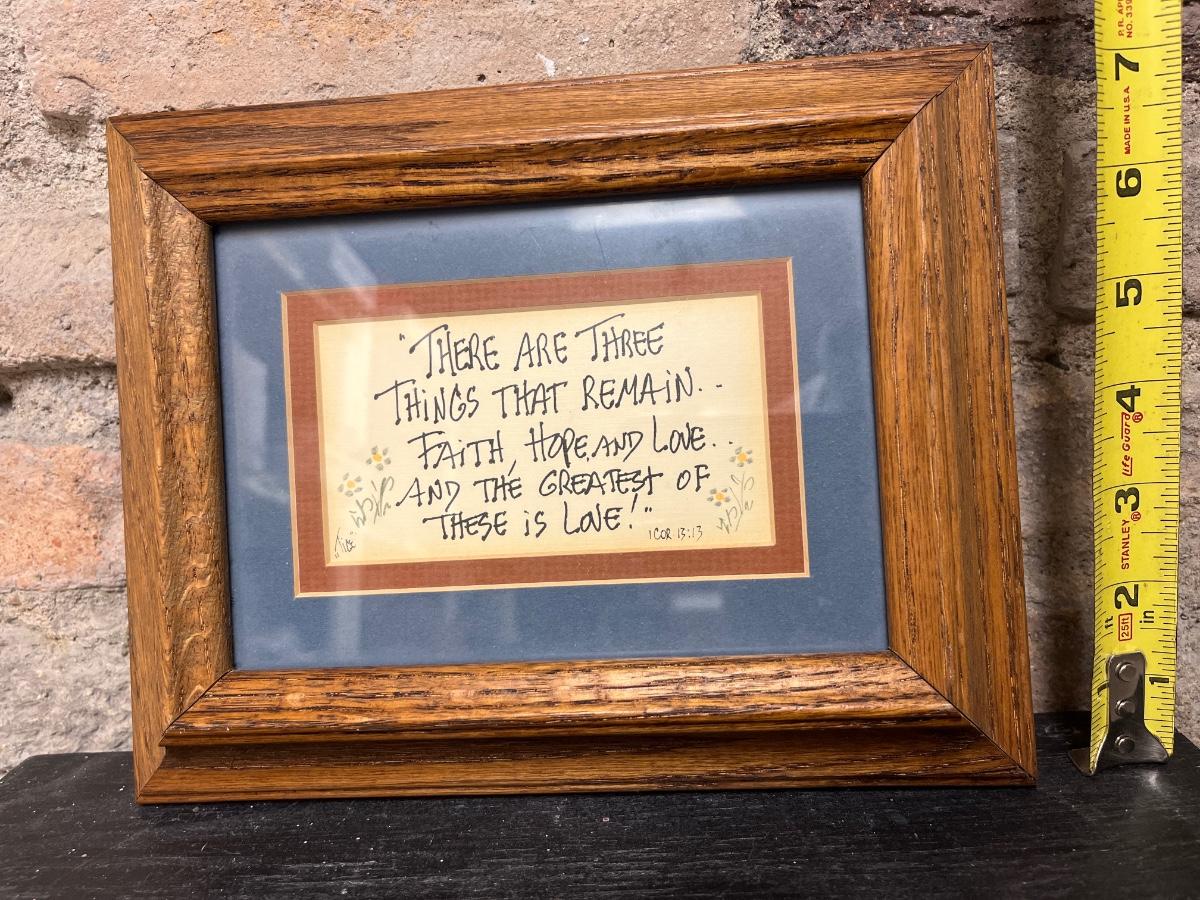 "THERE ARE THREE
THINGS THAT REMAIN..
FAITH, HOPE, AND LOVE..
AND THE GREATEST OF
THESE IS LOVE!"
1 COR 13:13
7
MADE IN U.S.A.
6
5
4
Life Guard®
3
STANLEY®
2
ft
25ft
in
1
1